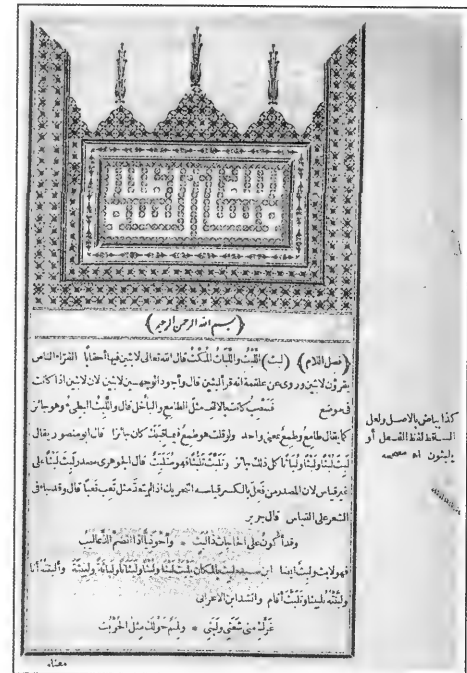 (بسم الله الرحمن الرحيم)
(فصل اللام) (لبث) اللَّبْثُ واللَّبَاثُ المُكْثُ قال الله تعالى لابثين فيها أحقابا الفراء الناس
يقرؤن لابثين وروى عن علقمة انه قرألبثين قال وأجود الوجهين لابثين لان لابثين اذا كانت
فى موضع فتنصب كانت بالالف مثل الطامع والباخل قال واللَّبِثُ البطىء وهو جائز
كما يقال طامع وطمع بمعنى واحد ولو قلت هو طمع فيما قبلك كان جائزا قال ابو منصور يقال
لَبِثَ لَبْثًا ولُبْثًا ولُبَاثًا كل ذلك جائز وتَلَبَّثَ تَلَبُّثًا فهو مُتَلَبِّثٌ قال الجوهرى مصدر لَبِثَ لَبْثًا على
غير قياس لان المصدر من فَعِلَ بالكسر قياسه التحريك اذا لم يتعدّ مثل تَعِبَ تَعَبًا قال وقد جاء فى
الشعر على القياس قال جرير
وقد أكون على الحاجات ذا لَبَثٍ * وأحْوَذِيًّا اذا انضمّ الذَّعاليبُ
فهو لابث ولَبِثٌ ايضا ابن سيده لبث بالمكان
ولَبَّثْتُه تَلْبِيثًا وتَلَبَّثَ أقام وانشد ابن الاعرابى
غَرَّكِ منى شَعَثى ولَبَثى * ولِمَمٌ حولك مثل الحُرْبُثِ
معناه
كذا بياض بالاصل ولعل
الساقط لفظ الفعل أو
يلبثون اه مصححه